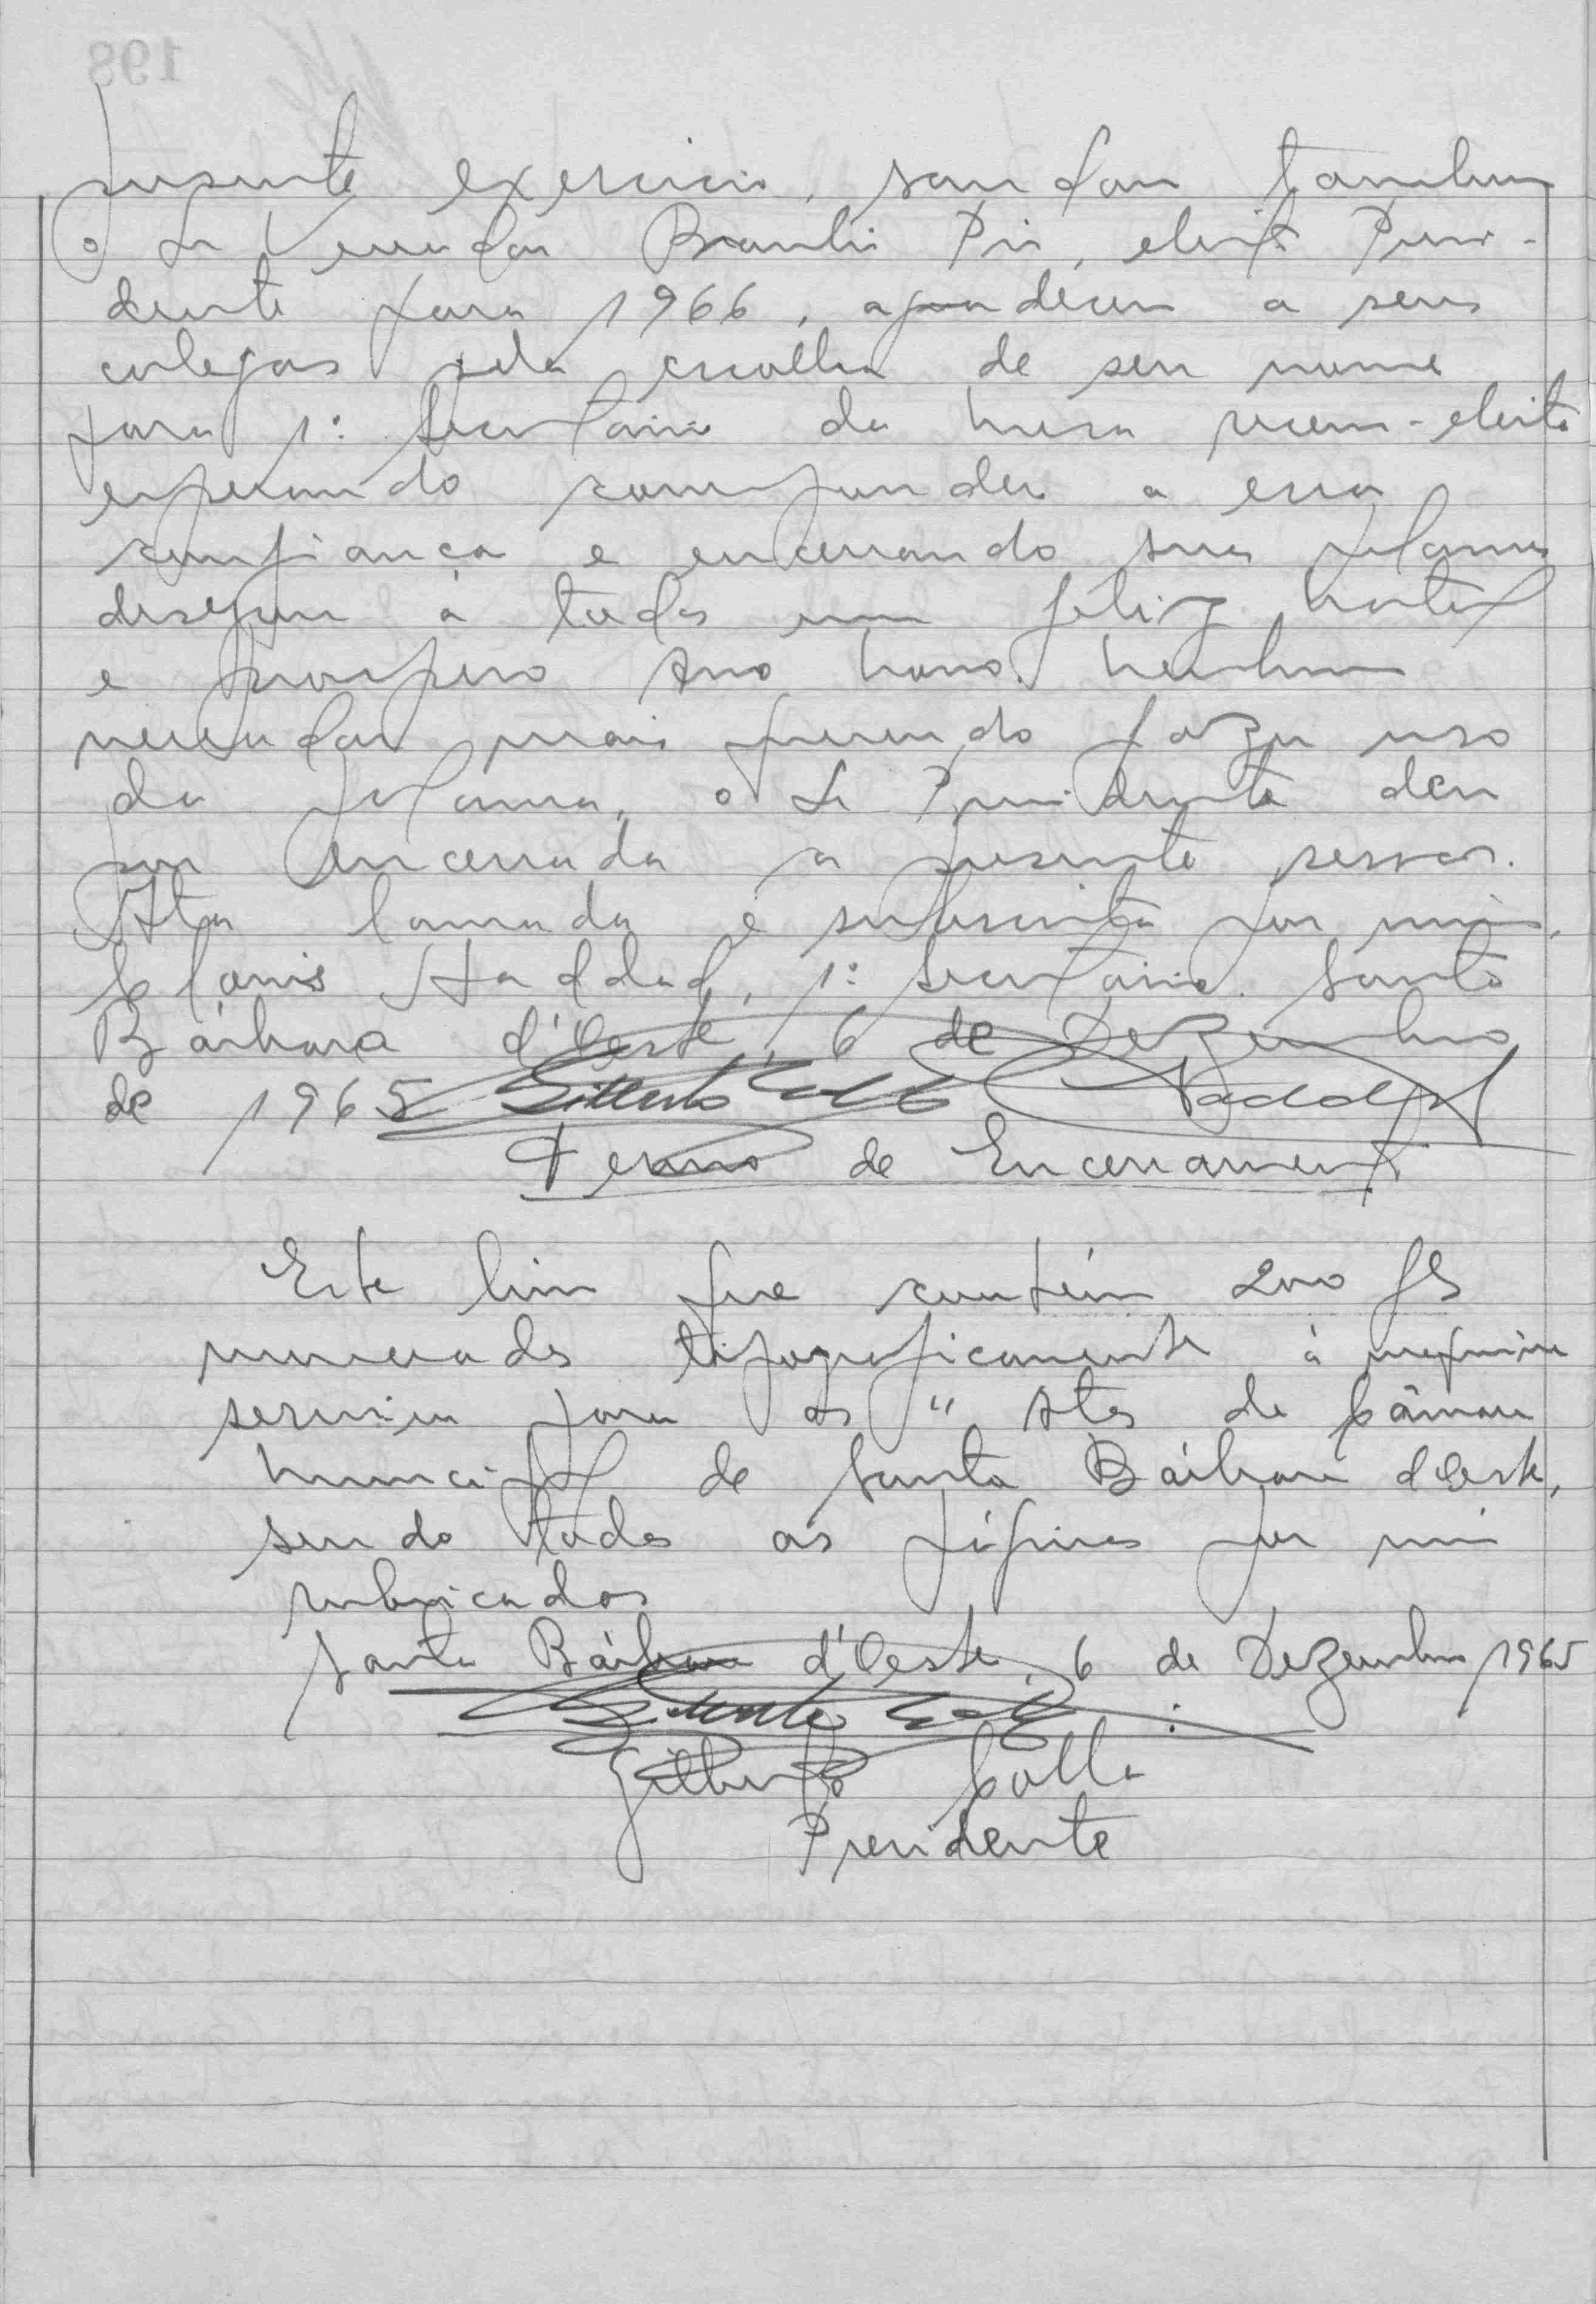 presente exercicio, saudou tambem
o Sr Vereador Braulio Pio, eleito Presi-
dente para 1966, agradeceu a seus
colegas pela escolha de seu nome
para 1º Secretario da mesa recem-eleita
esperando corresponder a essa
confiança e encerrando suas palavras
desejou à todos um feliz Natal
e prospero Ano Novo. Nenhum
vereador mais querendo fazer uso
da palavra, o Sr Presidente deu
por encerrada a presente sessão.
Ata lavrada e subscrita por mim,
Clovis Haddad, 1º Secretario. Santa
Bárbara d'Oeste, 6 de Dezembro
de 1965 Gilberto Haddad
Termo de Encerramento
Este livro que contém 200 fls
numeradas tipograficamente à
serviu para as " Atas da Câmara
Municipal de Santa Bárbara d'Oeste,
sendo todas as páginas por mim
rubricadas
Santa Bárbara d'Oeste, 6 de Dezembro 1965
Gilberto
Gilberto Colla
Presidente